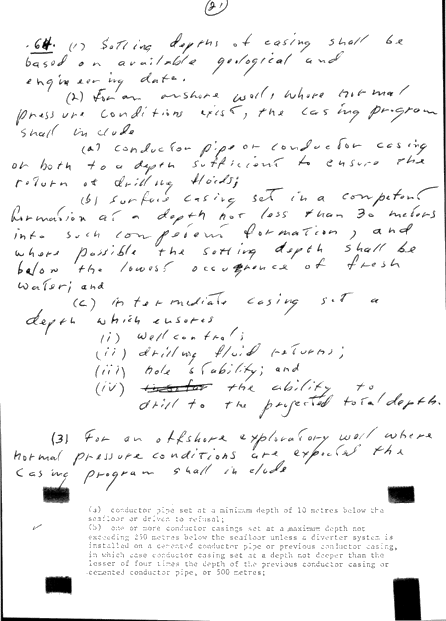 (21)
.64. (1) Setting depths of casing shall be
based on available geological and
engineering data.
(2) For an onshore well, where normal
pressure conditions exist, the casing program
shall include
(a) conductor pipe or conductor casing
or both to a depth sufficient to ensure the
return of drilling fluids;
(b) surface casing set in a competent
formation at a depth not less than 30 meters
into such competent formation, and
where possible the setting depth shall be
below the lowest occurrence of fresh
water; and
(c) intermediate casing set a
depth which ensures
(i) well control;
(ii) drilling fluid returns;
(iii) hole stability; and
(iv) the ability to
drill to the projected total depth.
(3) For an offshore exploratory well where
normal pressure conditions are expected the
casing program shall include
(a) conductor pipe set at a minimum depth of 10 metres below the
seafloor or driven to refusal;
(b) one or more conductor casings set at a maximum depth not
exceeding 250 metres below the seafloor unless a diverter system is
installed on a cemented conductor pipe or previous conductor casing,
in which case conductor casing set at a depth not deeper than the
lesser of four times the depth of the previous conductor casing or
cemented conductor pipe, or 500 metres;